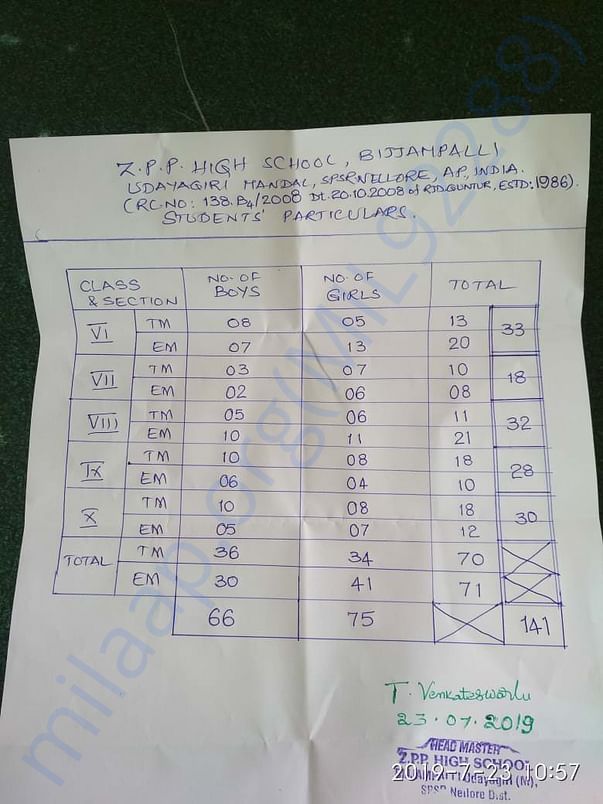 Z.P.P. HIGH SCHOOL, BIJJAMPALLI
UDAYAGIRI MANDAL, SPSR NELLORE, AP, INDIA.
(RC.NO: 138.B4/2008 Dt.20.10.2008 of RJD.GUNTUR, ESTD:1986).
STUDENTS' PARTICULARS.
CLASS & SECTION NO. OF BOYS NO. OF GIRLS TOTAL
VI TM 08 05 13 33
EM 07 13 20
VII TM 03 07 10 18
EM 02 06 08
VIII TM 05 06 11 32
EM 10 11 21
IX TM 10 08 18 28
EM 06 04 10
X TM 10 08 18 30
EM 05 07 12
TOTAL TM 36 34 70
EM 30 41 71
66 75 141
T. Venkateswarlu
23.07.2019
HEAD MASTER
Z.P.P. HIGH SCHOOL
Udayagiri (M),
SPSR Nellore Dist.
2019-7-23 10:57
milaap.org(MIL92288)